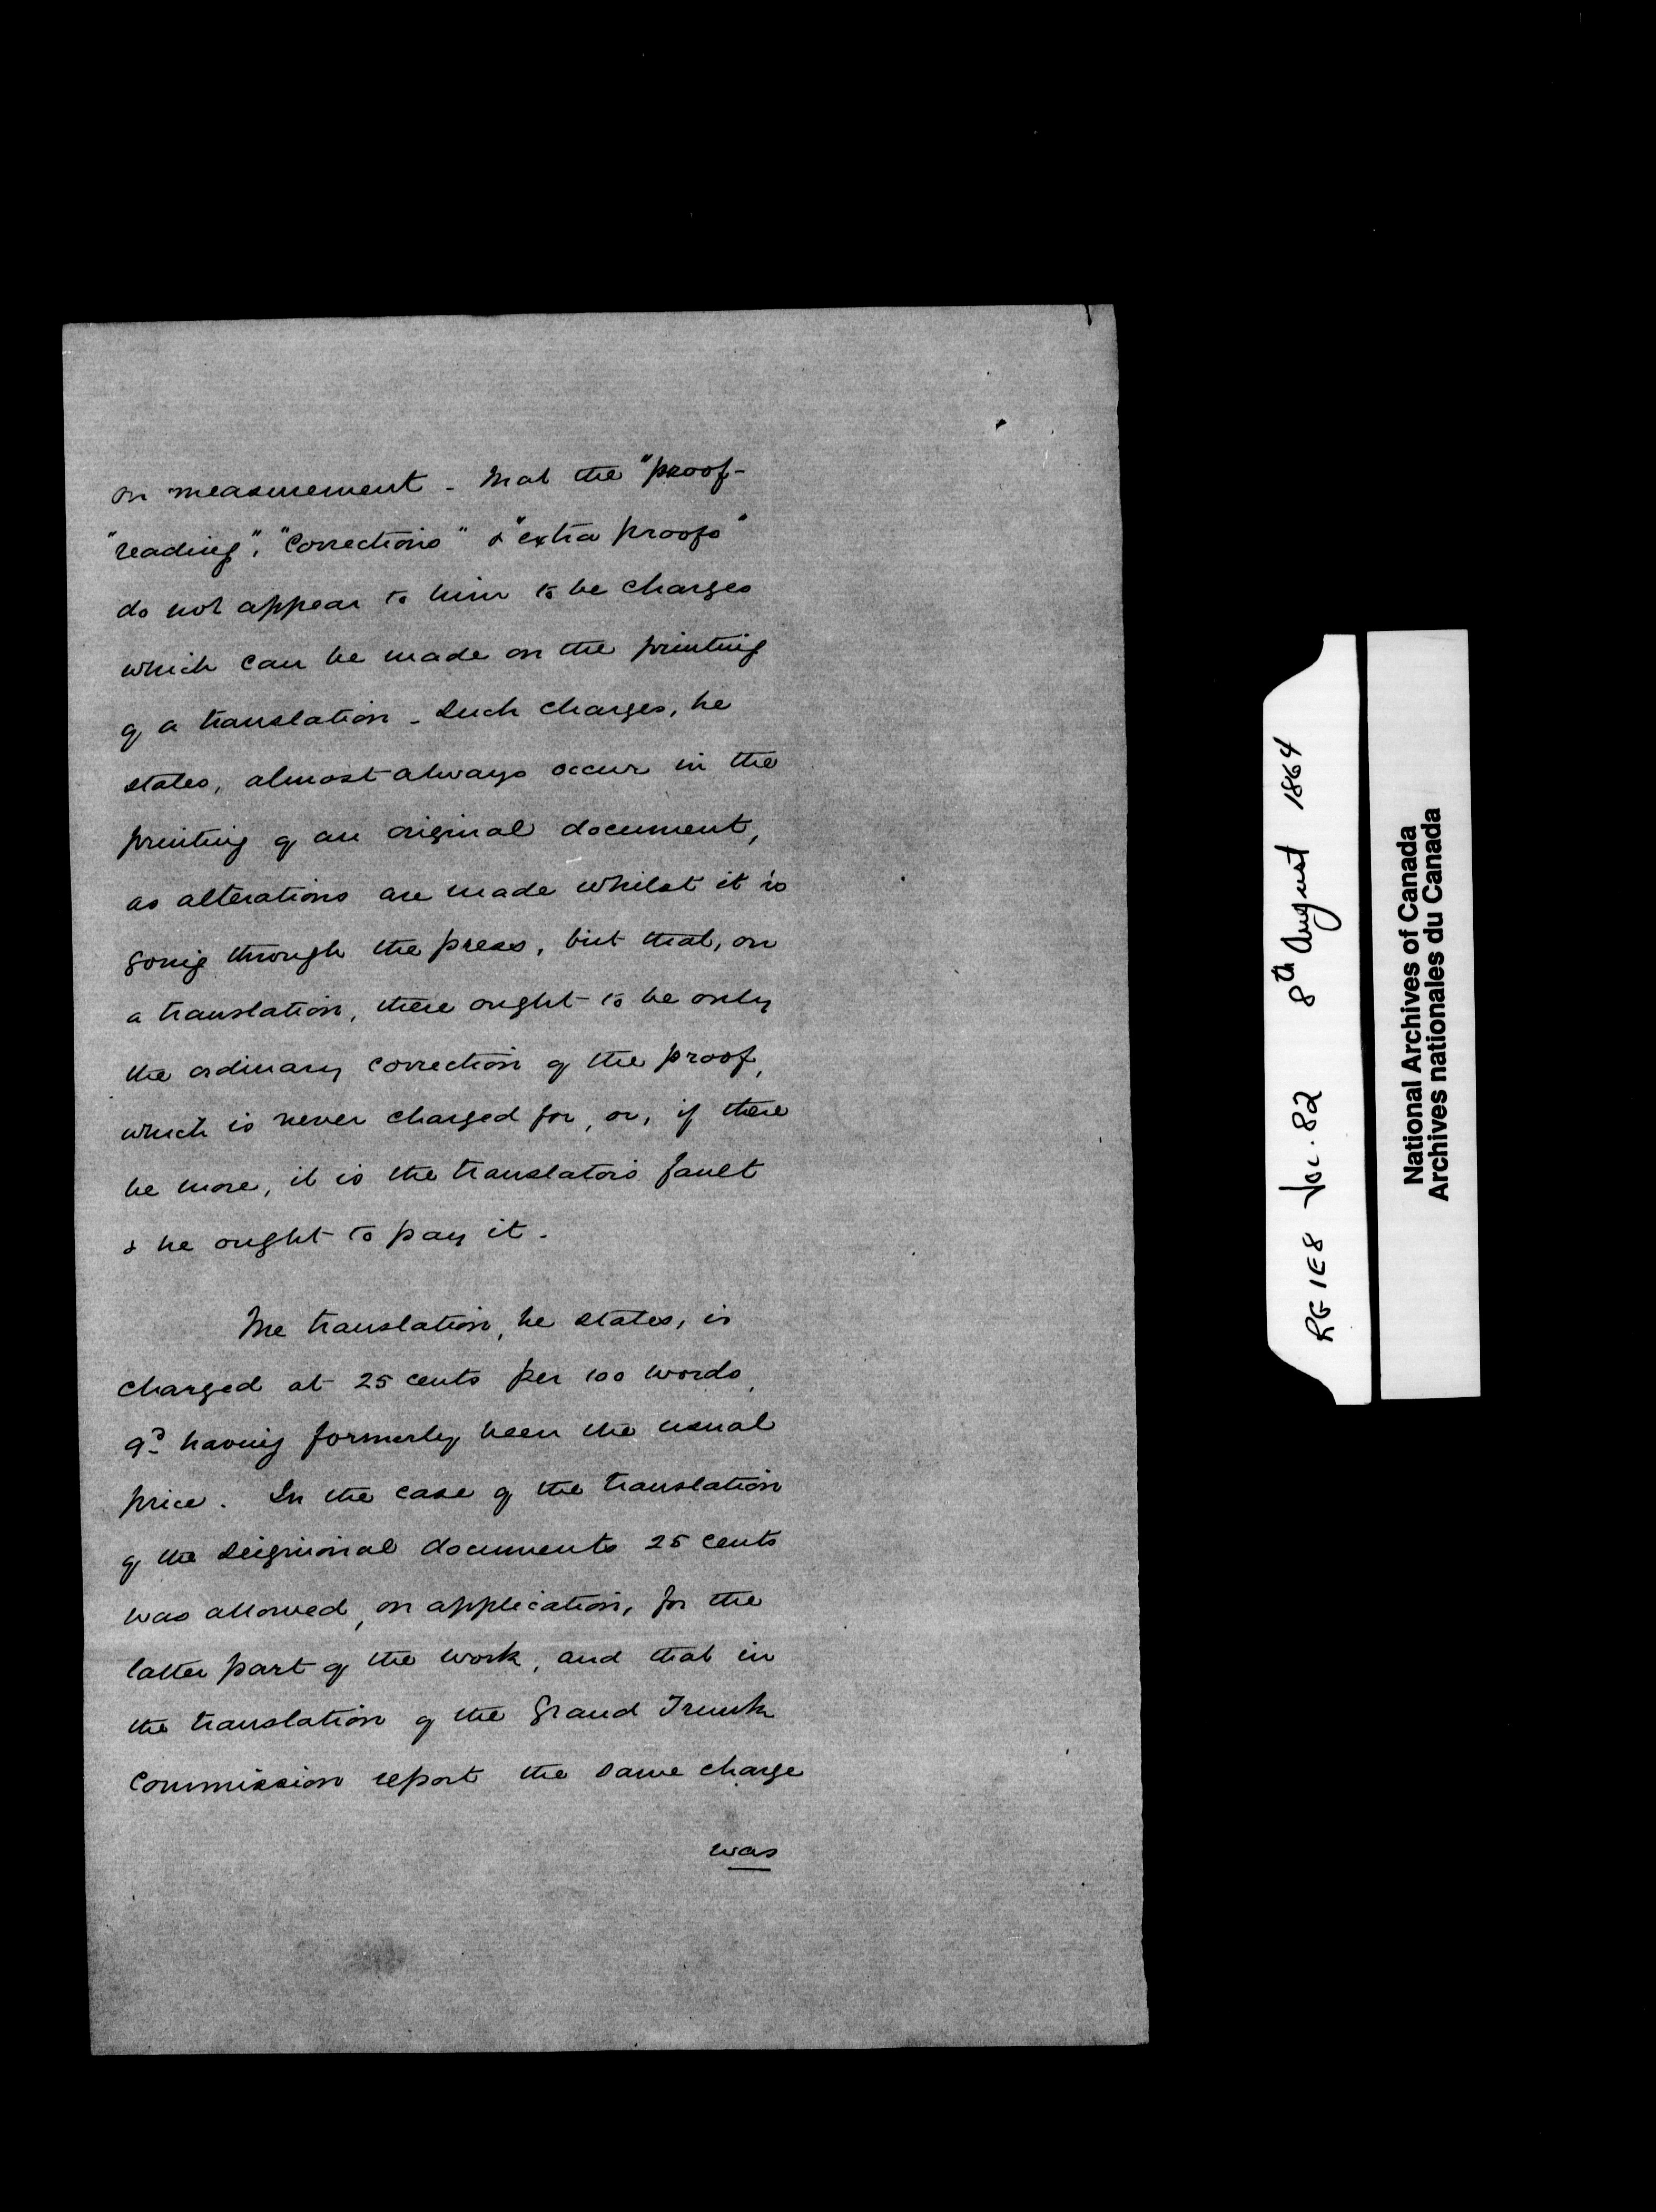 on measurement - That the "proof-
"reading", "Corrections" & "extra proofs"
do not appear to him to be charges
which can be made on the printing
of a translation - Such charges, he
states, almost always occur in the
printing of an original document,
as alterations are made whilst it is
going through the press, but that, on
a translation, there ought to be only
the ordinary correction of the proof,
which is never charged for, or, if there
be more, it is the translators fault
& he ought to pay it.
The translation, he states, is
charged at 25 cents per 100 words,
9d having formerly been the usual
price. In the case of the translation
of the Seigniorial documents 25 cents
was allowed, on application, for the
latter part of the work, and that in
the translation of the Grand Trunk
Commission report the same charge
was
RG 1E8 Vol. 82 8th August 1864
National Archives of Canada
Archives nationales du Canada